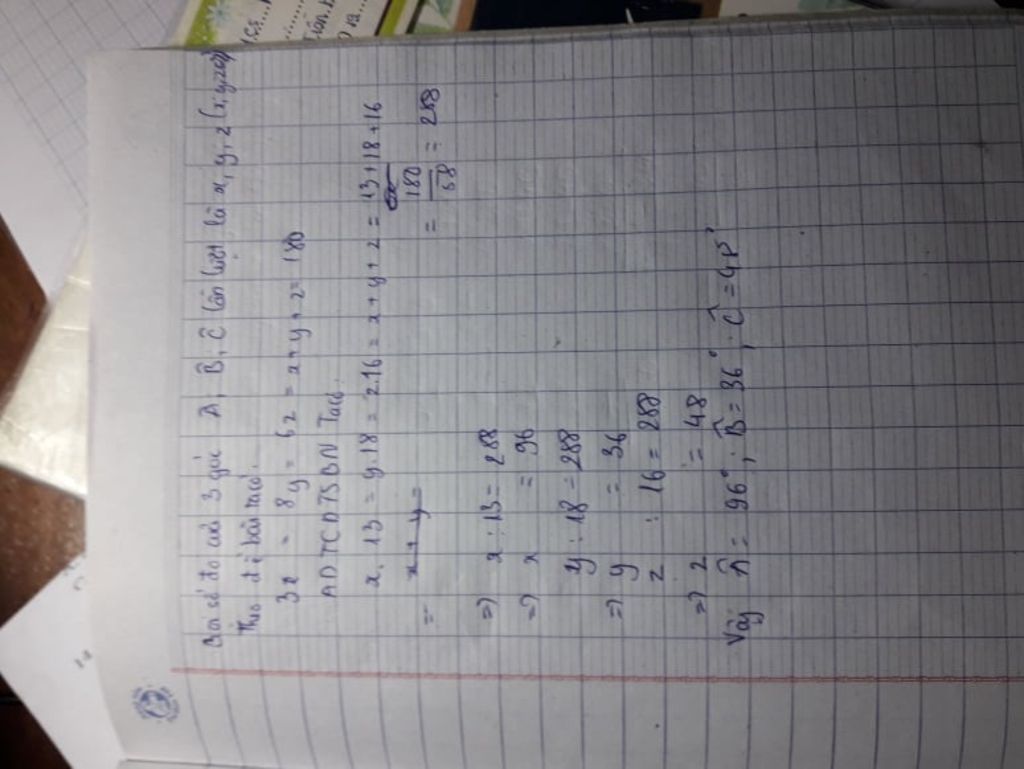 Gọi số đo của 3 góc Â, B̂, Ĉ lần lượt là x, y, z (x, y, z
Theo đề bài ta có.
3x = 8y = 6z = x + y + z = 180
ADTCDTSBN Tacó.
x. 13 = y. 18 = z. 16 = x + y + z = 13 + 18 + 16
= x + y =
= 180/58 = 288
=) x : 13 = 288
=) x = 96
y : 18 = 288
=) y = 36
z : 16 = 288
=) z = 48
Vậy Â = 96°; B̂ = 36°; Ĉ = 48°